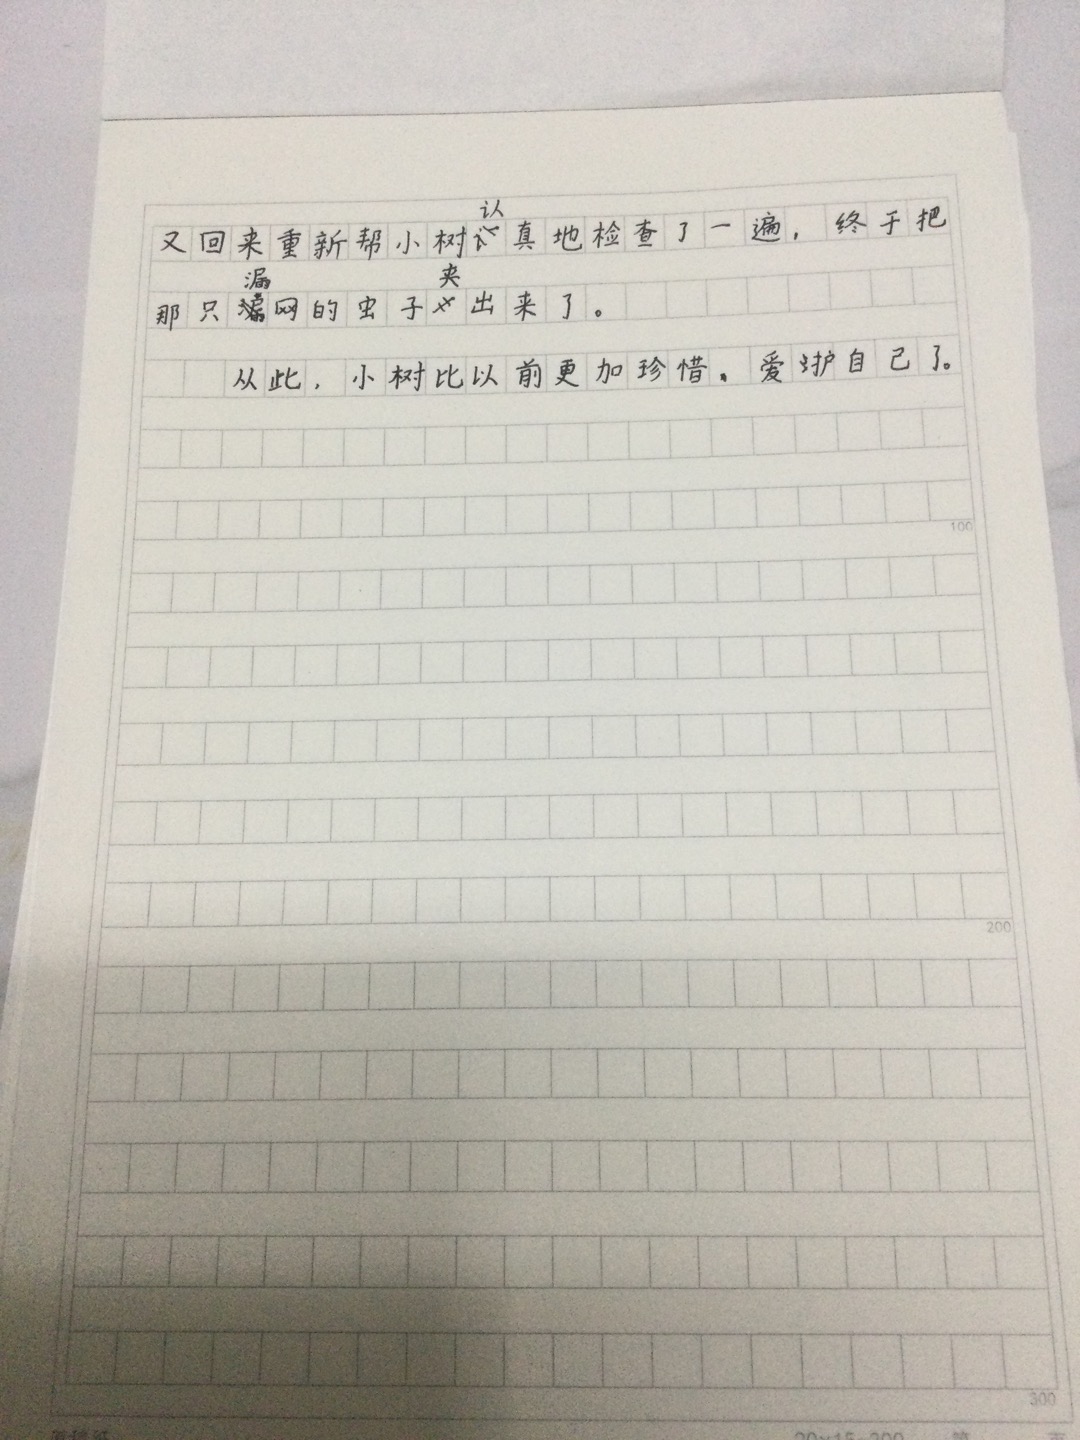 又回来重新帮小树认真地检查了一遍，终于把
那只漏网的虫子夹出来了。
从此，小树比以前更加珍惜、爱护自己了。
100
200
300
20×15=300 第 页